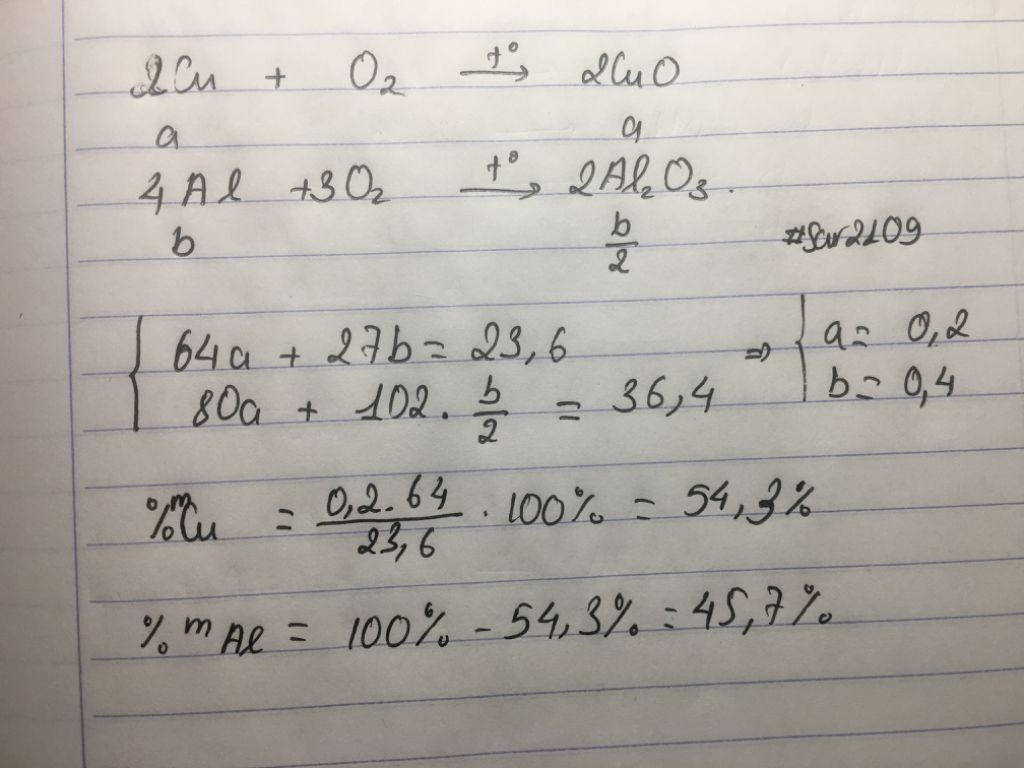 2Cu + O₂ —t°→ 2CuO
a a
4Al +3O₂ —t°→ 2Al₂O₃.
b b/2 #Sar2109
{ 64a + 27b = 23,6 ⇒ { a = 0,2
80a + 102 . b/2 = 36,4 b = 0,4
%mCu = 0,2.64/23,6 . 100% = 54,3%
%mAl = 100% - 54,3% = 45,7%